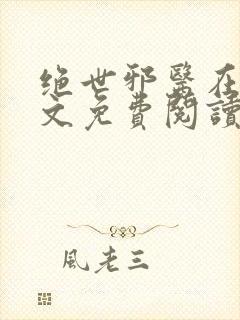 绝世邪醫在
文免費閱讀
風老三